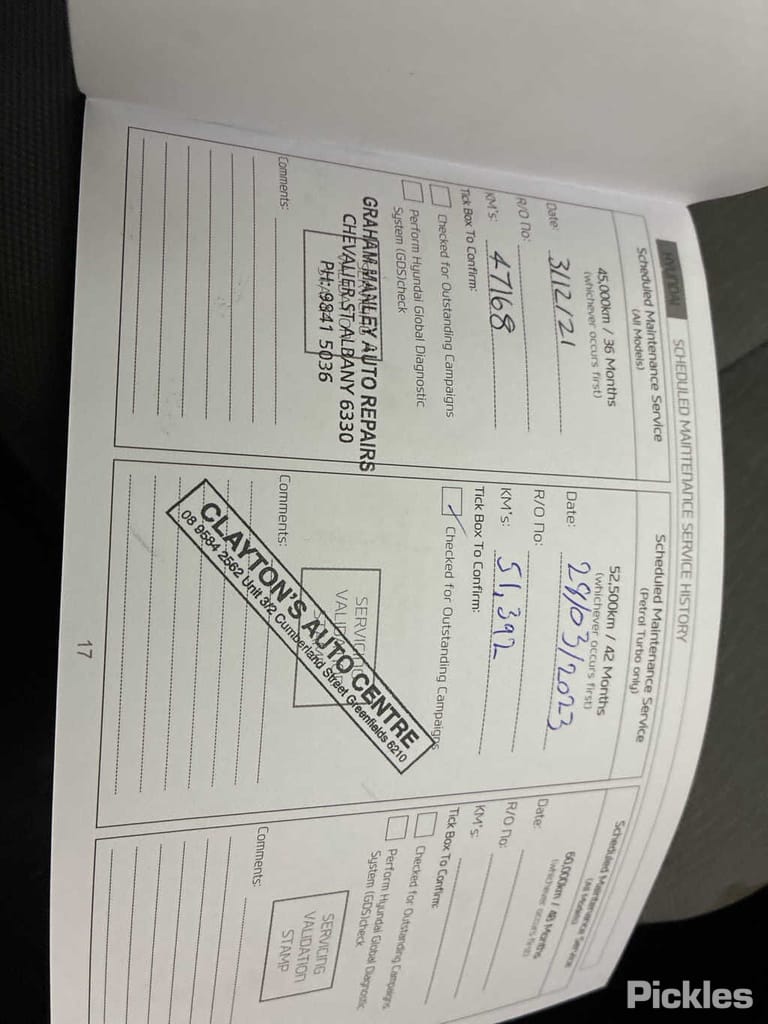 HYUNDAI
SCHEDULED MAINTENANCE SERVICE HISTORY
Scheduled Maintenance Service
(All Models)
45,000km / 36 Months
(whichever occurs first)
Date: 3/12/21
R/O No:
KM's: 47168
Tick Box To Confirm:
Checked for Outstanding Campaigns
Perform Hyundai Global Diagnostic
System (GDS)check
GRAHAM MANLEY AUTO REPAIRS
CHEVALIER ST ALBANY 6330
PH: 9841 5036
Comments:
Scheduled Maintenance Service
(Petrol Turbo only)
52,500km / 42 Months
(whichever occurs first)
Date: 29/03/2023
R/O No:
KM's: 51,392
Tick Box To Confirm:
Checked for Outstanding Campaigns
SERVICING
VALIDATION
CLAYTON'S AUTO CENTRE
08 9584 2562 Unit 3/2 Cumberland Street Greenfields 6210
Comments:
Scheduled Maintenance Service
(All Models)
60,000km / 48 Months
(whichever occurs first)
Date:
R/O No:
KM's:
Tick Box To Confirm:
Checked for Outstanding Campaigns
Perform Hyundai Global Diagnostic
System (GDS)check
SERVICING
VALIDATION
STAMP
Comments:
17
Pickles